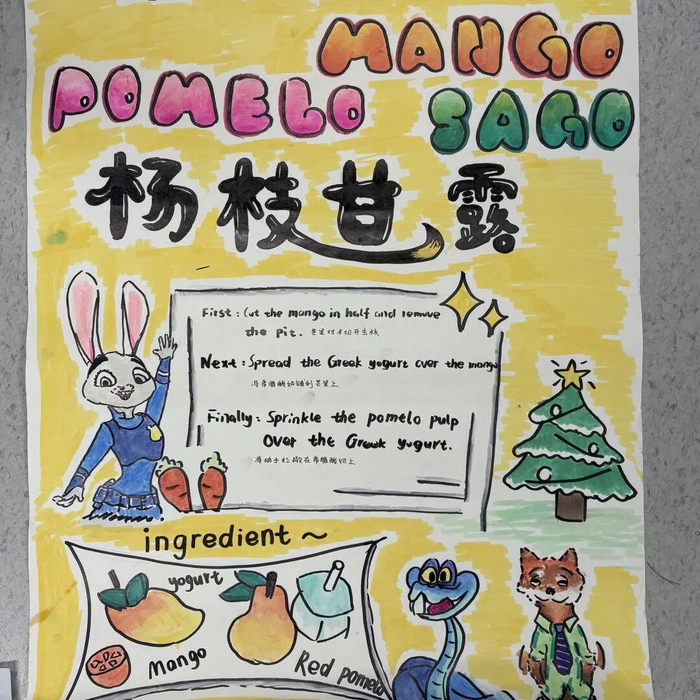 MANGO
POMELO
SAGO
杨枝甘露
First: Cut the mango in half and remove
the pit. 芒果对半切开去核
Next: Spread the Greek yogurt over the mango
将希腊酸奶铺到芒果上
Finally: Sprinkle the pomelo pulp
Over the Greek yogurt.
将柚子粒撒在希腊酸奶上
ingredient ~
yogurt
Mango
Red pomelo